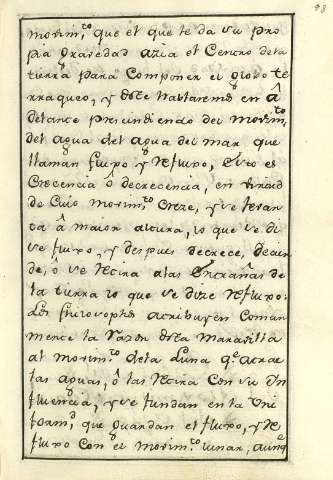 48
morim.to que el que le da su pro
pia gravedad azia el Centro dela
tierra para Componer el globo te
rraqueo, y deste hablaremos en â
delante prescindiendo del movim.to
del agua del agua del mar que
llaman fluxo y refluxo, Esto es
Crecencia ô decrecencia, en virtud
de cuio movim.to Creze, y se levan
ta â maior altura, lo que se di
ze fluxo, y despues decrece, decai
de, o se retira alas Entrañas de
la tierra lo que se dize refluxo:
Los philosophos atribuyen Comun
mente la razon desta Maravilla
al movim.to dela Luna q.e atrae
las aguas, ô las retira con su In
fluencia, y se fundan en la Uni
formd. que guardan el fluxo, y re
fluxo con el movim.to lunar, aunq.e